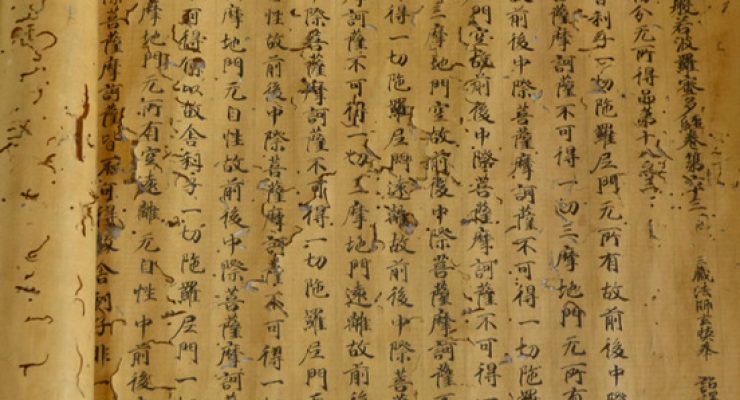 般若波羅蜜多經卷第六十二 三藏法師玄奘奉 詔譯
分无所得品第十八之
舍利子一切陀羅尼門无所有故前後中
際菩薩摩訶薩不可得一切三摩地門无所有
故前後中際菩薩摩訶薩不可得一切陀羅
門空故前後中際菩薩摩訶薩不可得一
三摩地門空故前後中際菩薩摩訶薩
得一切陀羅尼門遠離故前後中際菩
摩訶薩不可得一切三摩地門遠離故前後
際菩薩摩訶薩不可得一切陀羅尼門无
性故前後中際菩薩摩訶薩不可得一
摩地門无自性故前後中際菩薩摩訶
可得何以故舍利子一切陀羅尼門一
摩地門无所有空遠離无自性中前後
際菩薩摩訶薩皆不可得故舍利子非一